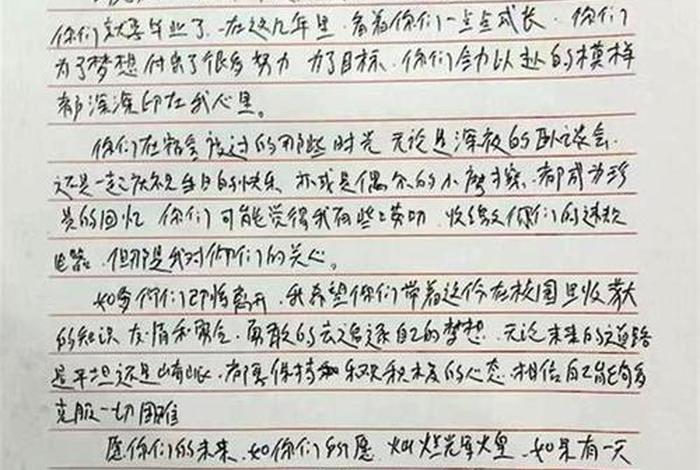 你们就要毕业了，在这几年里，看着你们一点点成长，你们
为了梦想付出了很多努力 为了目标，你们全力以赴的模样
都深深印在我心里。
你们在宿舍度过的那些时光 无论是深夜的卧谈会，
还是一起庆祝生日的快乐 亦或是偶尔的小摩擦，都成为珍
贵的回忆，你们可能觉得我有些 收缴你们的违规
电器，但那是我对你们的关心。
如今你们即将离开，我希望你们带着这份在校园里收获
的知识 友情和 勇敢的去追逐自己的梦想，无论未来的道路
是平坦还是崎岖，都要保持 积极的心态，相信自己能够
克服一切困难
愿你们的未来，如你们的愿， 如果有一天